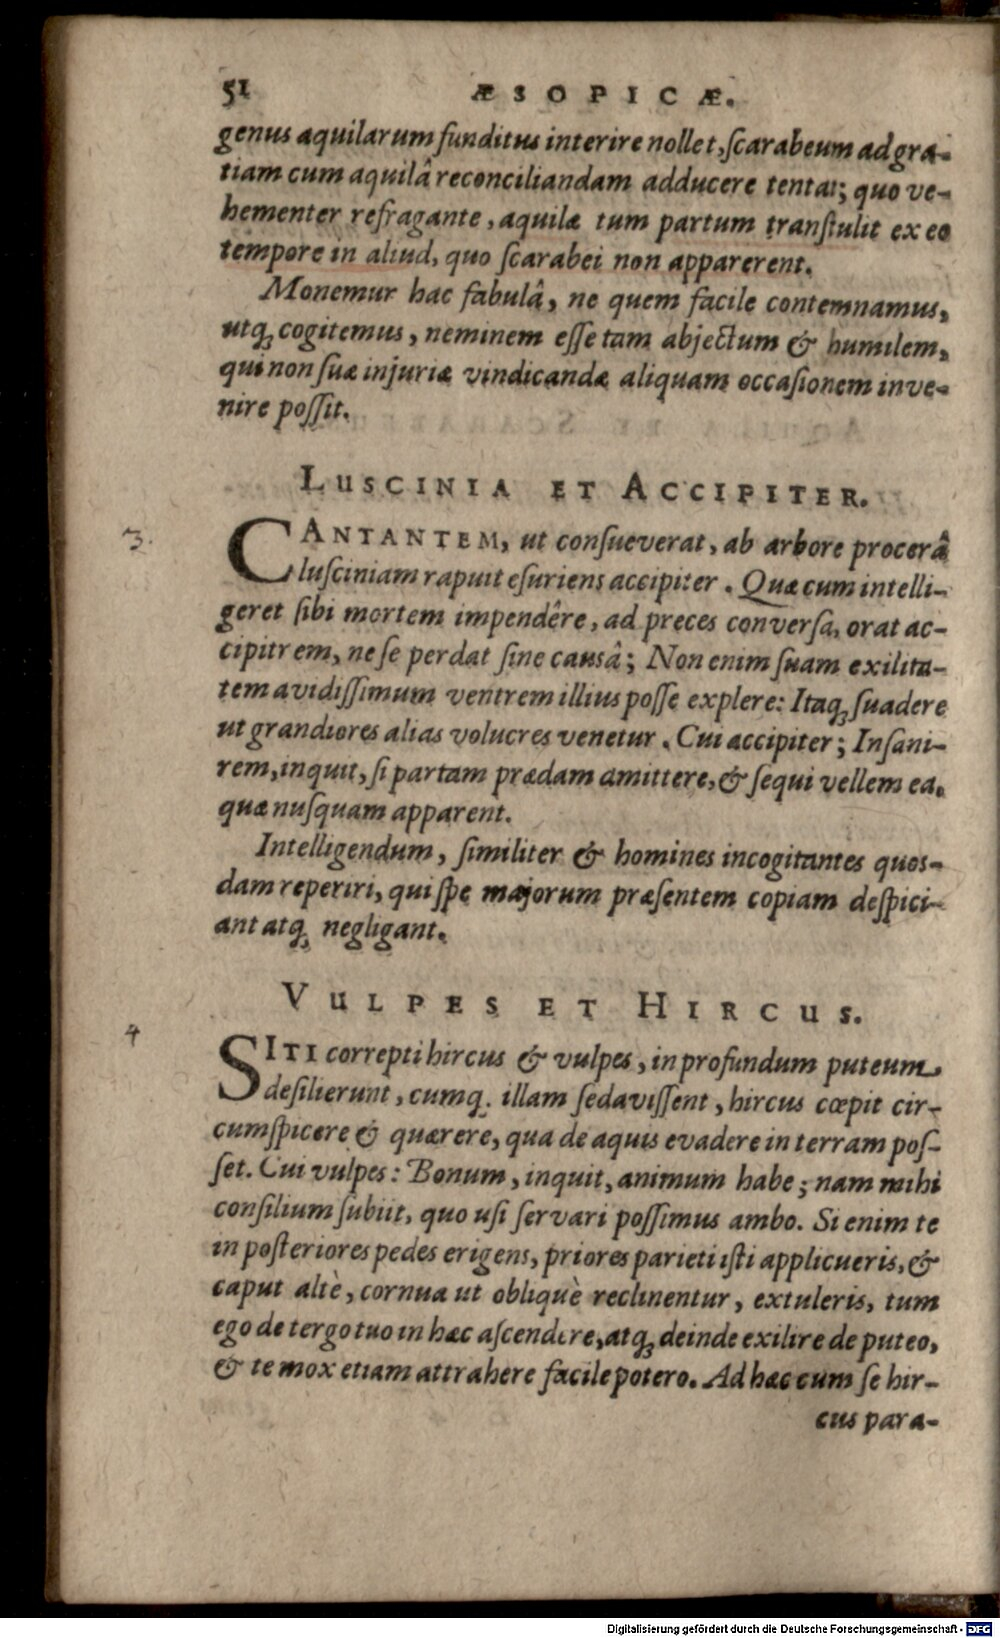 51 ÆSOPICÆ.
genus aquilarum funditus interire nollet, ſcarabeum ad gra-
tiam cum aquilâ reconciliandam adducere tentat; quo ve-
hementer refragante, aquilæ tum partum tranſtulit ex eo
tempore in aliud, quo ſcarabei non apparerent.
Monemur hac fabulâ, ne quem facile contemnamus,
utq; cogitemus, neminem eſſe tam abjectum & humilem,
qui non ſuæ injuriæ vindicandæ aliquam occaſionem inve-
nire poſſit.
LUSCINIA ET ACCIPITER.
3.
CANTANTEM, ut conſueverat, ab arbore procerâ
luſciniam rapuit eſuriens accipiter. Quæ cum intelli-
geret ſibi mortem impendêre, ad preces converſa, orat ac-
cipitrem, ne ſe perdat ſine causâ; Non enim ſuam exilita-
tem avidiſſimum ventrem illius poſſe explere: Itaq; ſuadere
ut grandiores alias volucres venetur. Cui accipiter; Inſani-
rem, inquit, ſi partam prædam amittere, & ſequi vellem ea,
quæ nuſquam apparent.
Intelligendum, ſimiliter & homines incogitantes quos-
dam reperiri, qui ſpe majorum præſentem copiam deſpici-
ant atq; negligant.
VULPES ET HIRCUS.
4
SITI correpti hircus & vulpes, in profundum puteum
deſilierunt, cumq; illam ſedaviſſent, hircus cœpit cir-
cumſpicere & quærere, qua de aquis evadere in terram poſ-
ſet. Cui vulpes: Bonum, inquit, animum habe; nam mihi
conſilium ſubiit, quo uſi ſervari poſſimus ambo. Si enim te
in poſteriores pedes erigens, priores parieti iſti applicueris, &
caput altè, cornua ut obliquè reclinentur, extuleris, tum
ego de tergo tuo in hæc aſcendere, atq; deinde exilire de puteo,
& te mox etiam attrahere facile potero. Ad hæc cum ſe hir-
cus para-
Digitalisierung gefördert durch die Deutsche Forschungsgemeinschaft - DFG